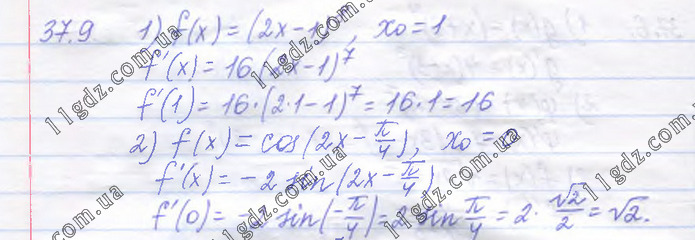 37.9 1) f(x) = (2x-1)⁸, x₀ = 1
f'(x) = 16·(2x-1)⁷
f'(1) = 16·(2·1-1)⁷ = 16·1 = 16
2) f(x) = cos(2x - π/4), x₀ = 0
f'(x) = -2 sin(2x - π/4)
f'(0) = -2 sin(-π/4) = 2 sin π/4 = 2·√2/2 = √2.
11gdz.com.ua
11gdz.com.ua
11gdz.com.ua
11gdz.com.ua
11gdz.com.ua